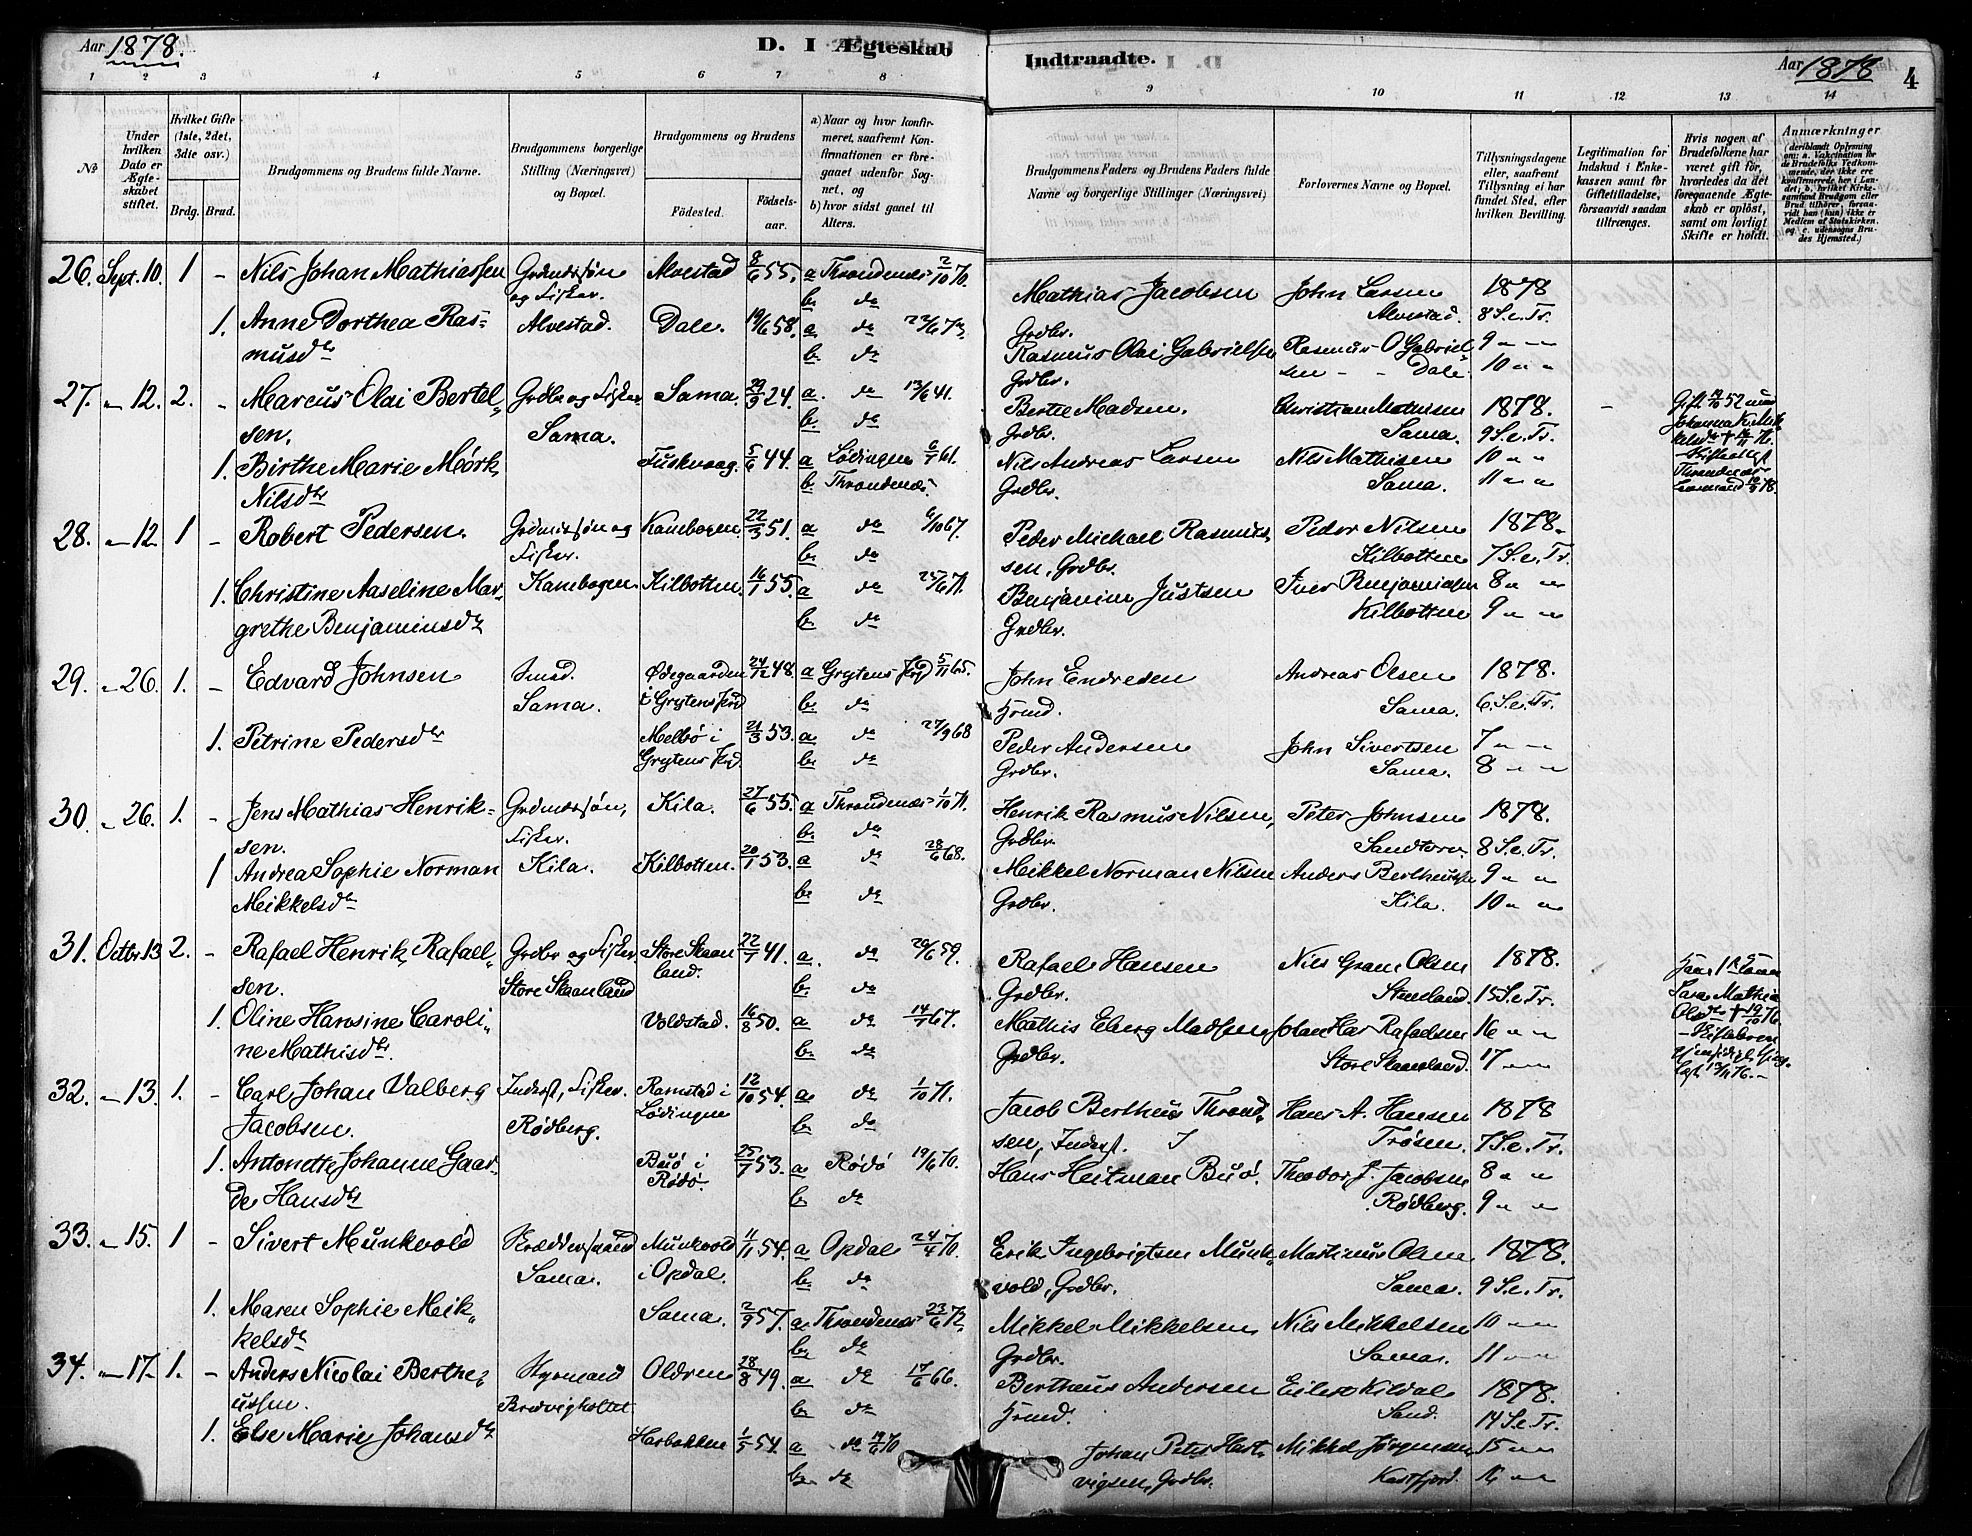 Aar 1878.
D. I Ægteskab
Indtraadte.
Aar 1878
4
1 2 3 4 5 6 7 8 9 10 11 12 13 14
No
Under hvilken Dato er Ægteskabet stiftet.
Hvilket Gifte (1ste, 2det, 3die osv.)
Brdg. Brud.
Brudgommens og Brudens fulde Navne.
Brudgommens borgerlige Stilling (Næringsvei) og Bopæl.
Brudgommens og Brudens
Fødested.
Fødselsaar.
a) Naar og hvor konfirmeret, saafremt Konfirmationen er foregaaet udenfor Sognet, og
b) hvor sidst gaaet til Alters.
Brudgommens Faders og Brudens Faders fulde Navne og borgerlige Stillinger (Næringsvei)
Forlovernes Navne og Bopæl.
Tillysningsdagene eller, saafremt Tillysning ei har fundet Sted, efter hvilken Bevilling.
Legitimation for Indskud i Enkekassen samt for Giftetilladelse, forsaavidt saadan tiltrænges.
Hvis nogen af Brudefolkene har været gift før, hvorledes da det foregaaende Ægteskab er opløst, samt om lovligt Skifte er holdt.
Anmærkninger
(deriblandt Oplysning om: a. Vakcination for de Brudefolks Vedkommende, der ikke ere konfirmerede her i Landet; b. hvilket Kirkesamfund Brudgom eller Brud tilhører, forsaavidt han (hun) ikke er Medlem af Statskirken, og c. udensogns Brudes Hjemsted.)
26. Sept. 10. 1 - Nils Johan Mathiassen Grdmdssøn Alvestad 8/6 55. a Throndenæs 2/10 70. Mathias Jacobsen John Larsen 1878
og Fisker. b. do Grdbr. Alvestad. 8 S. e. Tr.
1. Anne Dorthea Ras- Alvestad. Dale. 19/6 58. a. do 22/6 73. Rasmus Olai Gabrielsen Rasmus O Gabriel 9 " "
musdtr b. do Grdbr. sen - - Dale 10 " "
27. " 12. 2. - Marcus Olai Bertel- Grdbr og Fisker Sama. 29/9 24. a. do 13/6 41. Bertel Madsen. Christian Mathisen 1878. -
sen. Sama. b. do Grdbr. Sama. 9 S. e. Tr.
1. Birthe Marie Mørk Fuskvaag. 5/6 44. a Lødingen 61. Nils Andreas Larsen Nils Mathisen 10 " "
Nilsdtr b. Throndenæs. Grdbr. Sama. 11 " "
28. " 12. 1 - Robert Pedersen. Grdmdssøn og Kanebogen 22/3 51. a do 6/10 67. Peder Michael Rasmus- Peder Nilsen 1878.
Fisker. b. do sen, Grdbr. Kilbotten 7 S. e. Tr.
1. Christine Aaseline Mar- Kanebogen. Kilbotten. 16/1 55. a do 25/6 71. Benjamin Justsen Iver Benjaminsen 8 " "
grethe Benjaminsdtr b. do Grdbr. Kilbotten 9 " "
29. " 26. 1. - Edvard Johnsen Smed. Ødegaarden 24/12 48. a Grytens Pgd 5/11 65. John Endresen Andreas Olsen 1878.
Sama. i Grytens Pgd b. do Hmd. Sama. 6 S. e. Tr.
1. Petrine Pedersdtr Melbø i 21/3 53. a do 27/9 68 Peder Andersen John Sivertsen 7 " "
Grytens Pgd. b. do Grdbr. Sama. 8 " "
30. " 26. 1. - Jens Mathias Henrik- Grdmdssøn, Kila. 27/6 55. a Throndenæs 1/10 71. Henrik Rasmus Nilsen, Peter Johnsen 1878.
sen. Fisker. b. do Grdbr. Sandtorv. 8 S. e. Tr.
1 Andrea Sophie Norman Kila. Kilbotten. 20/1 53. a do 28/6 68. Meikkel Norman Nilsen Anders Bertheussen 9 " "
Meikkelsdtr b. do Grdbr. Kila. 10 " "
31. Octbr 13 2. - Rafael Henrik Rafael- Grdbr og Fisker Store Skaan 22/1 41. a. do 29/6 59. Rafael Hansen Nils Grane Olsen 1878.
sen. Store Skaanland land. b. do Grdbr. 15 S. e. Tr.
1. Oline Hansine Caroli- Voldstad. 16/8 50. a do 14/7 67. Mathis Eberg Madsen Johan Har Rafaelsen 16 " "
ne Mathisdtr. b. do Grdbr. Store Skaanland. 17 " "
32. " 13. 1. - Carl Johan Valberg Inderst, Fisker. Ramstad i 12/10 54. a do 1/10 71. Jacob Bertheus Thrond- Hans A. Hansen 1878
Jacobsen. Rødberg. Lødingen b. do sen, Inderst. Trøsen. 7 S. e. Tr.
1. Antonette Johanne Gaar- Buø i 25/7 53. a Rødø 19/6 70. Hans Heitman Buø. Theodor J. Jacobsen 8 " "
de Hansdtr Rødø. b. do Rødberg. 9 " "
33. " 15. 1 - Sivert Munkvold Skræddersvend Munkvold 11/11 54. a Opdal 24/4 70. Erik Ingebrigtsen Munk- Martinus Olsen 1878.
Sama. i Opdal. b. do vold, Grdbr. Sama. 9 S. e. Tr.
1. Maren Sophie Meik- Sama. 2/9 57. a. Throndenæs 23/6 72. Mikkel Mikkelsen Nils Mikkelsen 10 " "
kelsdtr b. do Grdbr. Sama. 11 " "
34. " 17. 1. - Anders Nicolai Berthe- Styrmand Oldren 28/8 49. a do 17/6 66. Bertheus Andersen Eilert Kildal 1878.
ussen. Bredvigholtet b. do Hmd. Sand. 14 S. e. Tr.
1. Else Marie Johansdtr Herbakken 1/5 54. a do 19/6 70 Johan Peter Hart- Mikkel Jørgensen 15 " "
b. do vigsen, Grdbr. Kasfjord. 16 " "